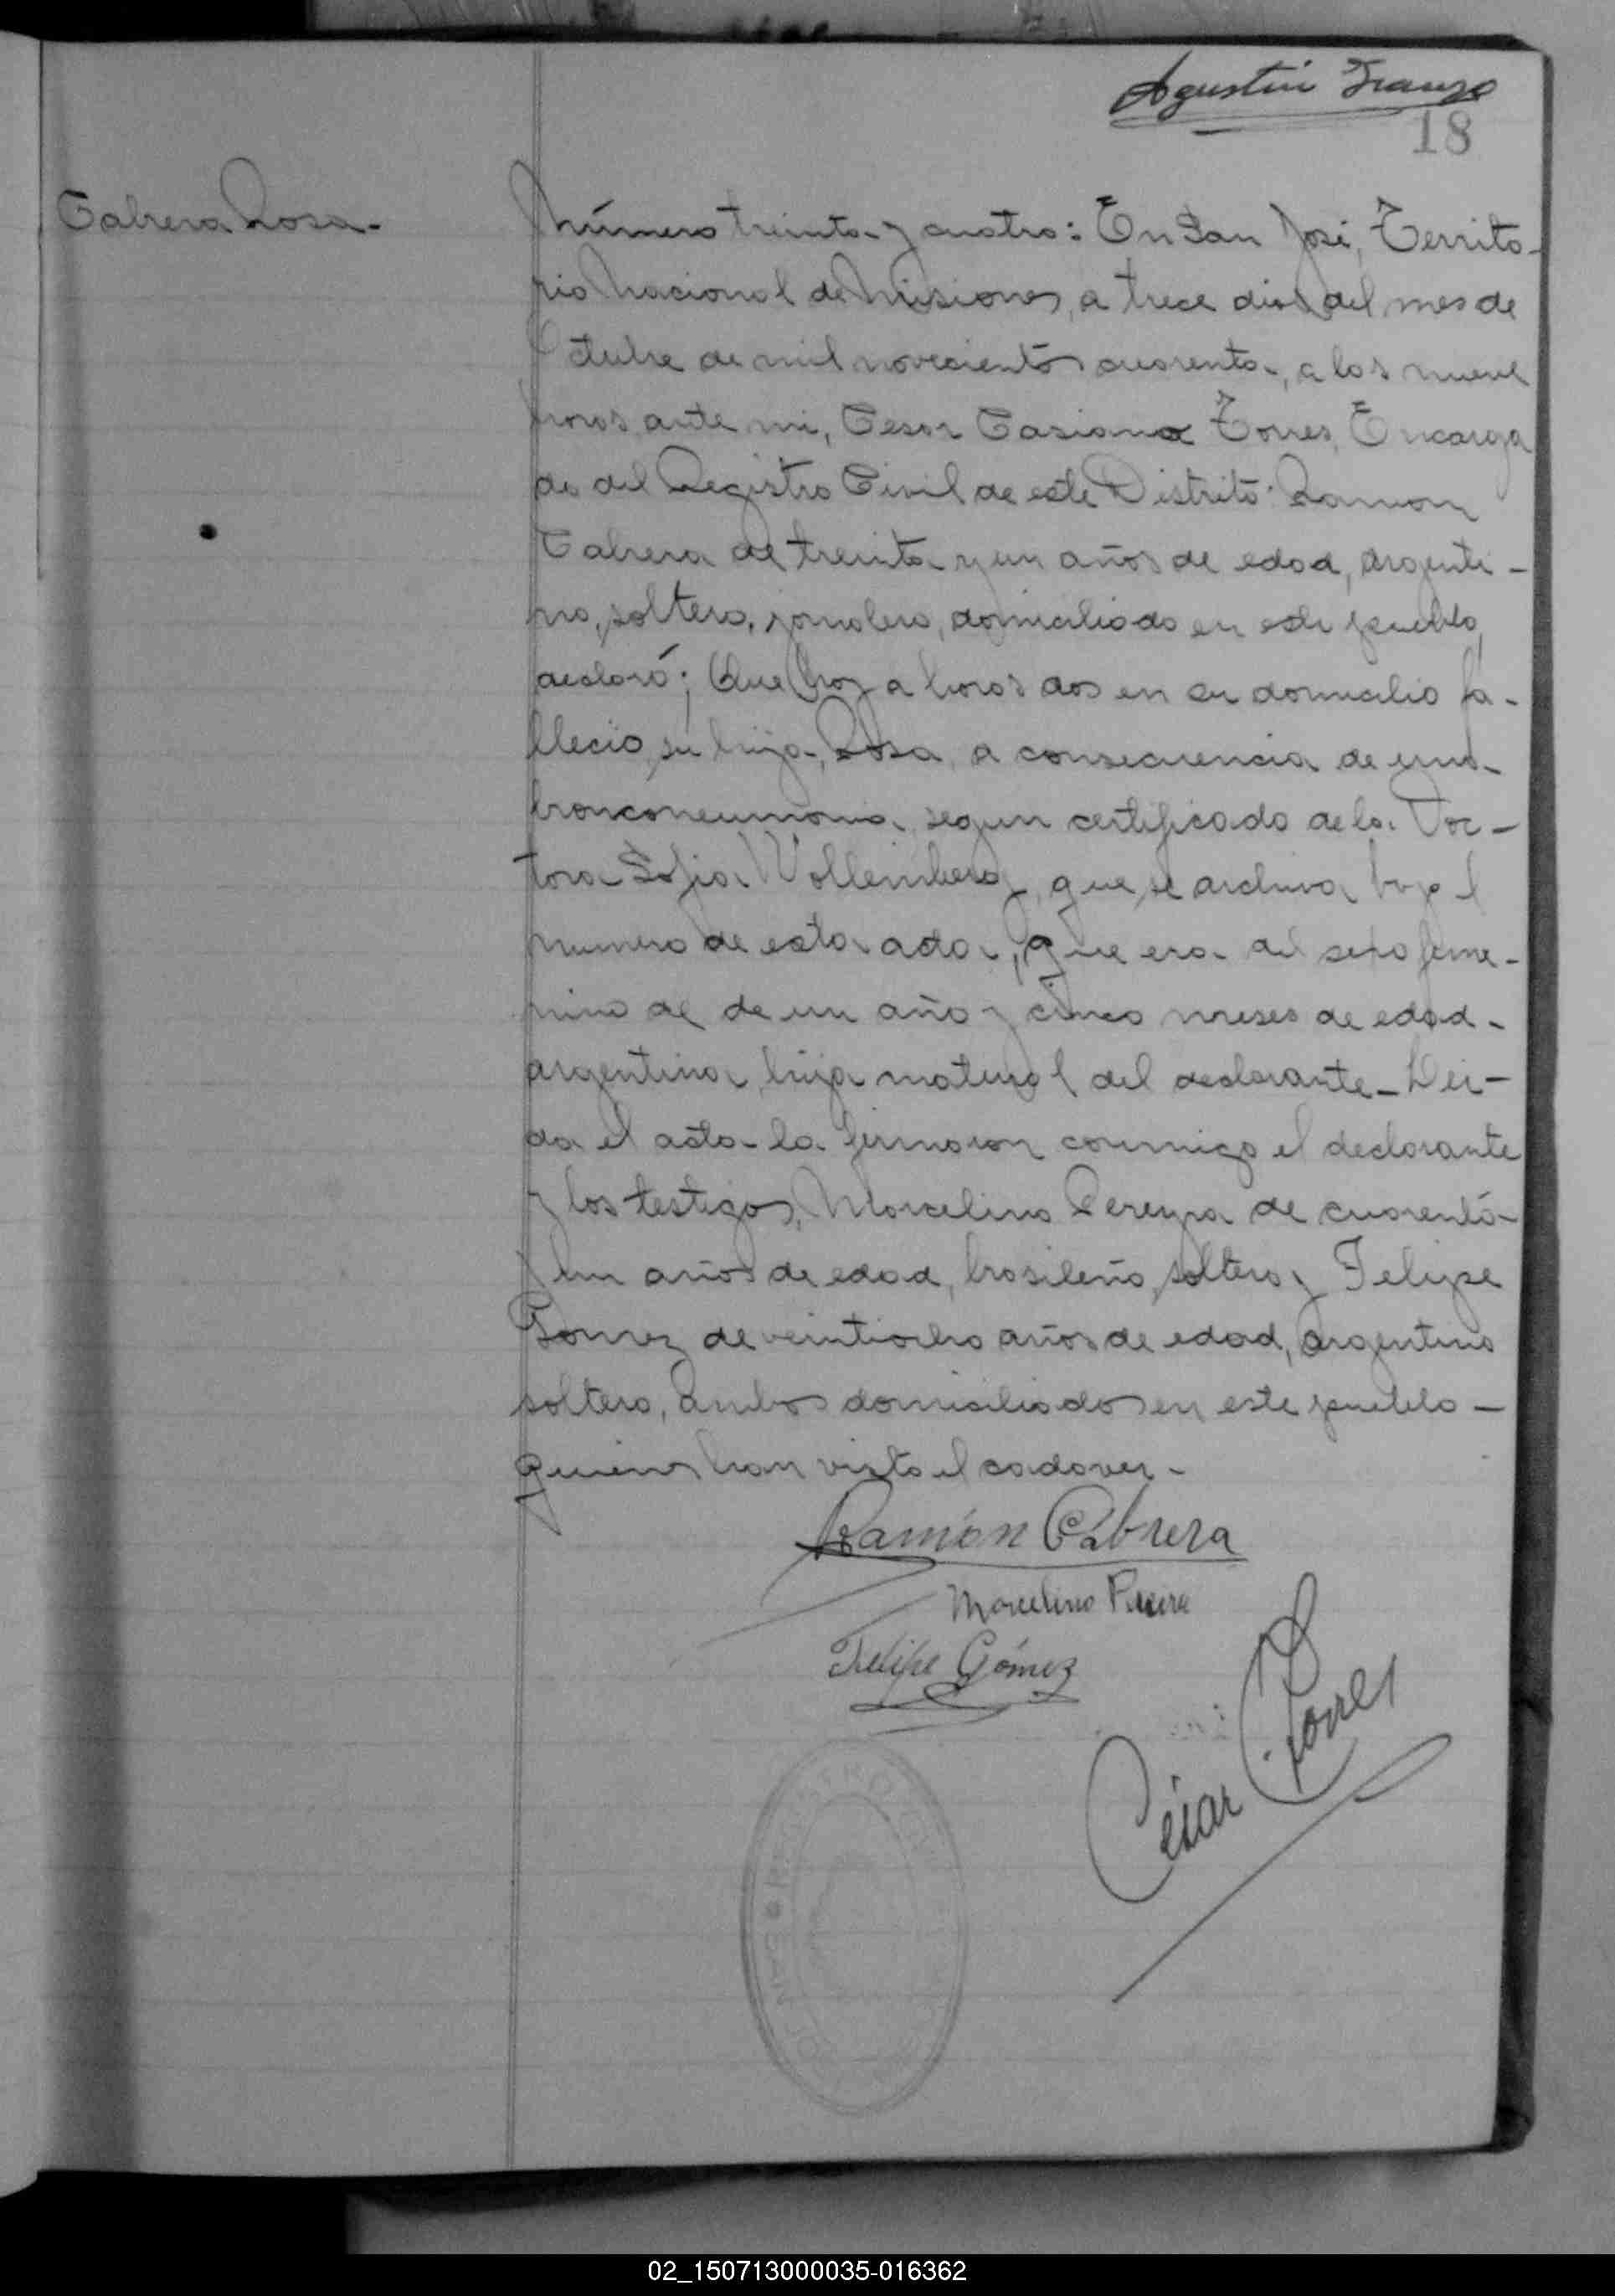 Agustín Franzo
18
Cabrera Rosa-
Número treinta y cuatro: En San José, Territo-
rio Nacional de Misiones, a trece dias del mes de
Octubre de mil novecientos cuarenta, a las nueve
horas ante mi, Cesar Casiano Torres, Encarga
do del Registro Civil de este Distrito: Ramon
Cabrera de treinta y un años de edad, argenti-
no, soltero, jornalero, domiciliado en este pueblo,
declaró; Que hoy a horas dos en su domicilio fa-
llecio su hija, Rosa, a consecuencia de una
bronconeumonia, segun certificado de la Doc-
tora Sofia Wollemberg, que se archiva bajo el
numero de esta acta, que era del sexo feme-
nino de de un año y cinco meses de edad-
argentina hija natural del declarante- Lei-
da el acta la firmaron conmigo el declarante
y los testigos, Marcelino Pereyra de cuarenta
y un años de edad, brasileño, soltero y Felipe
Gomez de veintiocho años de edad, argentino
soltero, ambos domiciliados en este pueblo-
quienes han visto el cadaver-
Ramón Cabrera
Marcelino Pereira
Felipe Gómez
César C. Torres
REGISTRO
SAN JO
02_150713000035-016362